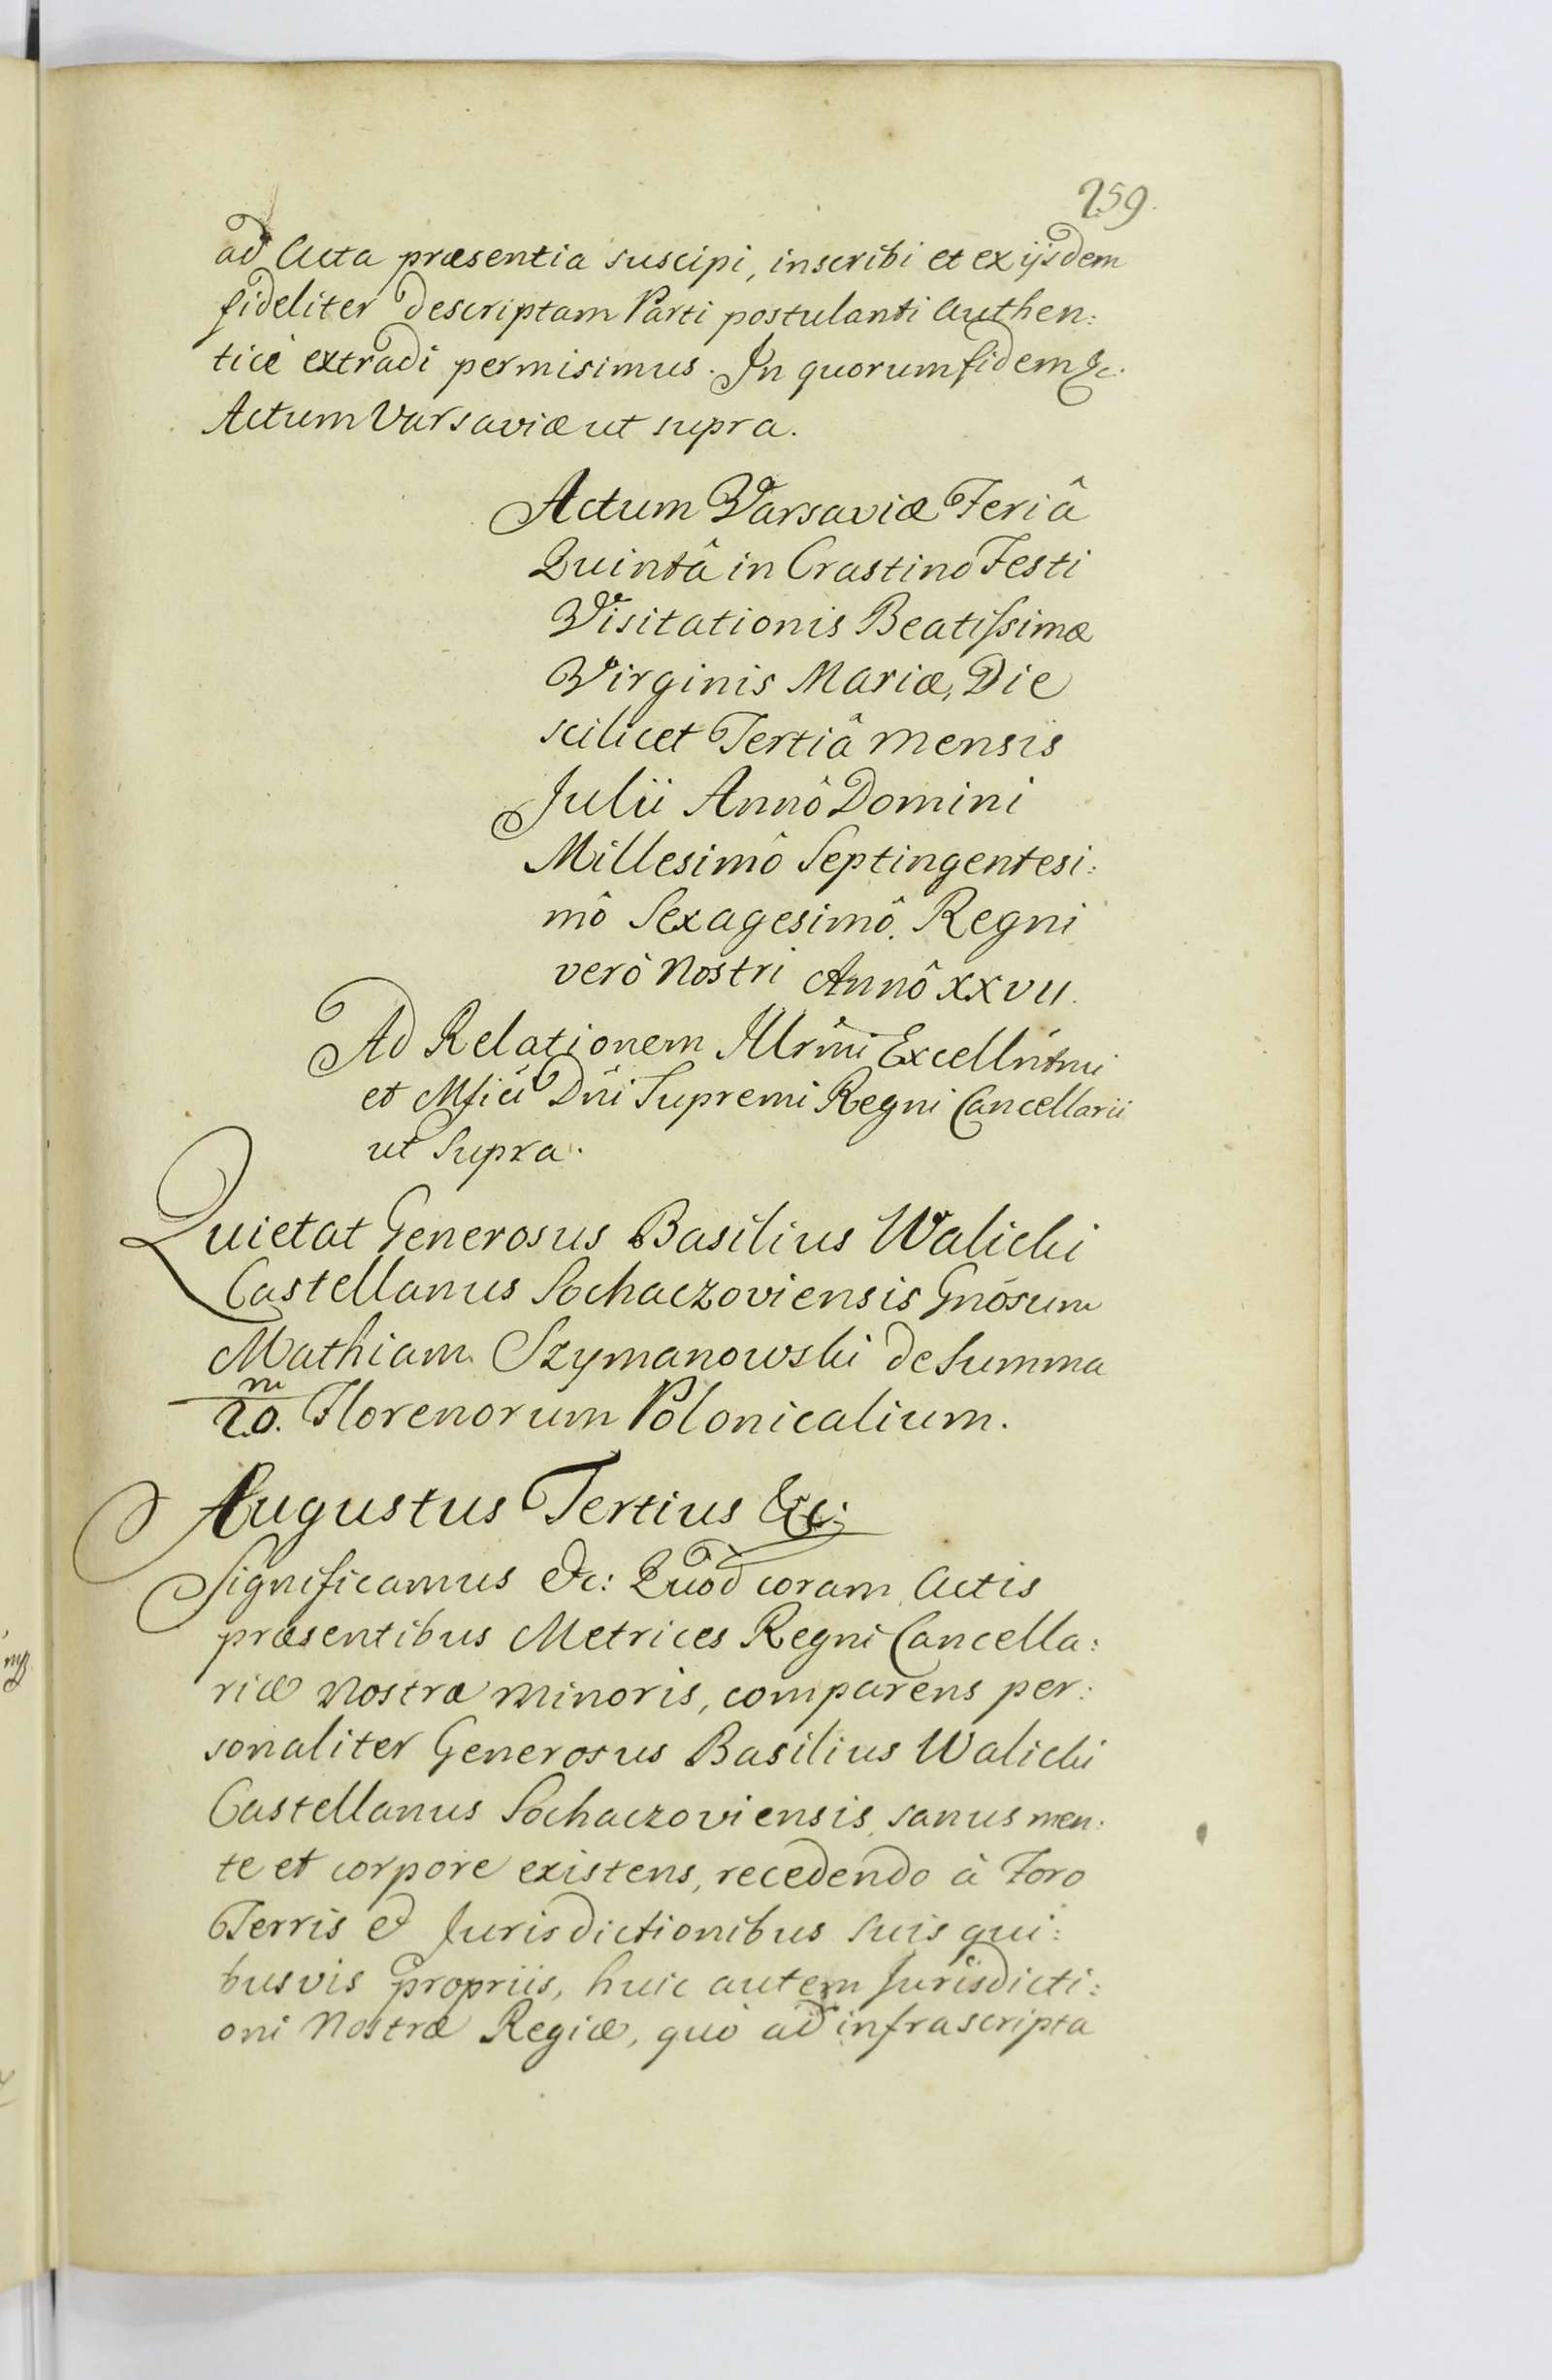 259.
ad Acta præsentia suscipi, inscribi et ex ijsdem
fideliter descriptam Parti postulanti Authen:
ticè extradi permisimus. In quorum fidem &c.
Actum Varsaviæ ut supra.
Actum Varsaviæ Feriâ
Quintâ in Crastino Festi
Visitationis Beatissimæ
Virginis Mariæ, Die
scilicet Tertiâ mensis
Julii Annô Domini
Millesimô Septingentesi:
mô Sexagesimô. Regni
verò Nostri Annô XXVII.
Ad Relationem Illrmi Excellntmi
et Mfici Dni Supremi Regni Cancellarii
ut Supra.
Quietat Generosus Basilius Walicki
Castellanus Sochaczoviensis Gnosum
Mathiam Szymanowski de Summa
m
20. Florenorum Polonicalium.
Augustus Tertius &c:
Significamus &c: Quod coram Actis
præsentibus Metrices Regni Cancella:
riæ Nostræ Minoris, comparens per:
sonaliter Generosus Basilius Walicki
Castellanus Sochaczoviensis, sanus men:
te et corpore existens, recedendo à Foro
Terris et Jurisdictionibus suis qui:
busvis propriis, huic autem Jurisdicti:
oni Nostræ Regiæ, quò ad infrascripta